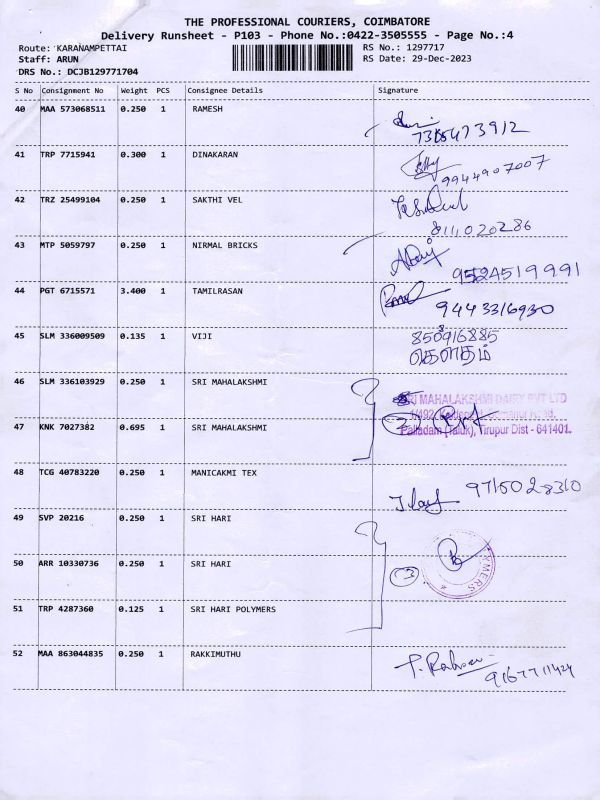 THE PROFESSIONAL COURIERS, COIMBATORE
Delivery Runsheet - P103 - Phone No.:0422-3505555 - Page No.:4
Route: KARANAMPETTAI RS No.: 1297717
Staff: ARUN RS Date: 29-Dec-2023
DRS No.: DCJB129771704
S No Consignment No Weight PCS Consignee Details Signature
40 MAA 573068511 0.250 1 RAMESH
41 TRP 7715941 0.300 1 DINAKARAN
9944907007
42 TRZ 25499104 0.250 1 SAKTHI VEL
8111020286
43 MTP 5059797 0.250 1 NIRMAL BRICKS
9524519991
44 PGT 6715571 3.400 1 TAMILRASAN
9443316930
45 SLM 336009509 0.135 1 VIJI
கௌதம்
46 SLM 336103929 0.250 1 SRI MAHALAKSHMI
SRI MAHALAKSHMI DAIRY PVT LTD
47 KNK 7027382 0.695 1 SRI MAHALAKSHMI
Palladam (Taluk), Tirupur Dist - 641401.
48 TCG 40783220 0.250 1 MANICAKMI TEX
9715028310
49 SVP 20216 0.250 1 SRI HARI
50 ARR 10330736 0.250 1 SRI HARI
3
51 TRP 4287360 0.125 1 SRI HARI POLYMERS
52 MAA 863044835 0.250 1 RAKKIMUTHU